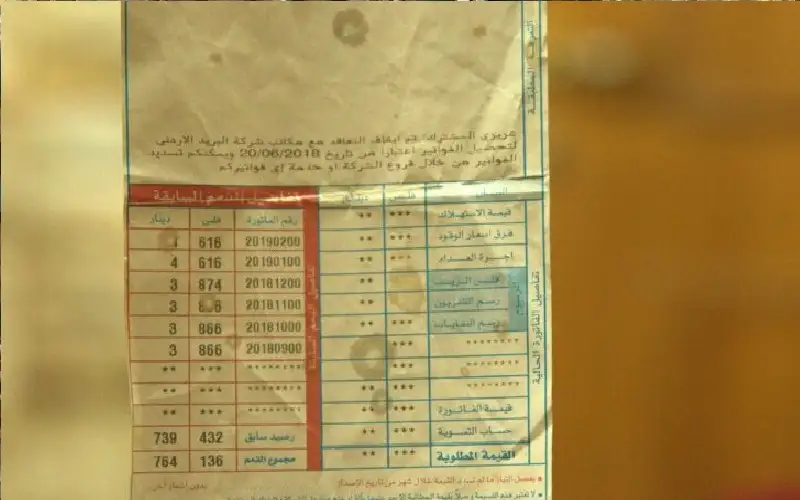 التعرفة المطبقة
عزيزي المشترك: تم ايقاف التعاقد مع مكاتب شركة البريد الأردني
لتحصيل الفواتير اعتبارا من تاريخ 20/06/2018 ويمكنكم تسديد
الفواتير من خلال فروع الشركة او خدمة إي فواتيركم
فلس دينار
قيمة الاستهلاك *** **
فرق اسعار الوقود *** **
اجرة العداد *** **
فلس الريف **
رسم التلفزيون **
رسم النفايات *** **
******** ***
******** ***
******** *** **
قيمة الفاتورة *** **
حساب التسوية *** **
القيمة المطلوبة *** **
الرسوم
تفاصيل الفاتورة الحالية
تفاصيل الذمم السابقة
رقم الفاتورة فلس دينار
20190200 616
20190100 616 4
20181200 874 3
20181100 3
20181000 866 3
20180900 866 3
******** *** **
******** *** **
******** *** **
رصيد سابق 432 739
مجموع الذمم 136 764
خلال شهر من تاريخ الإصدار